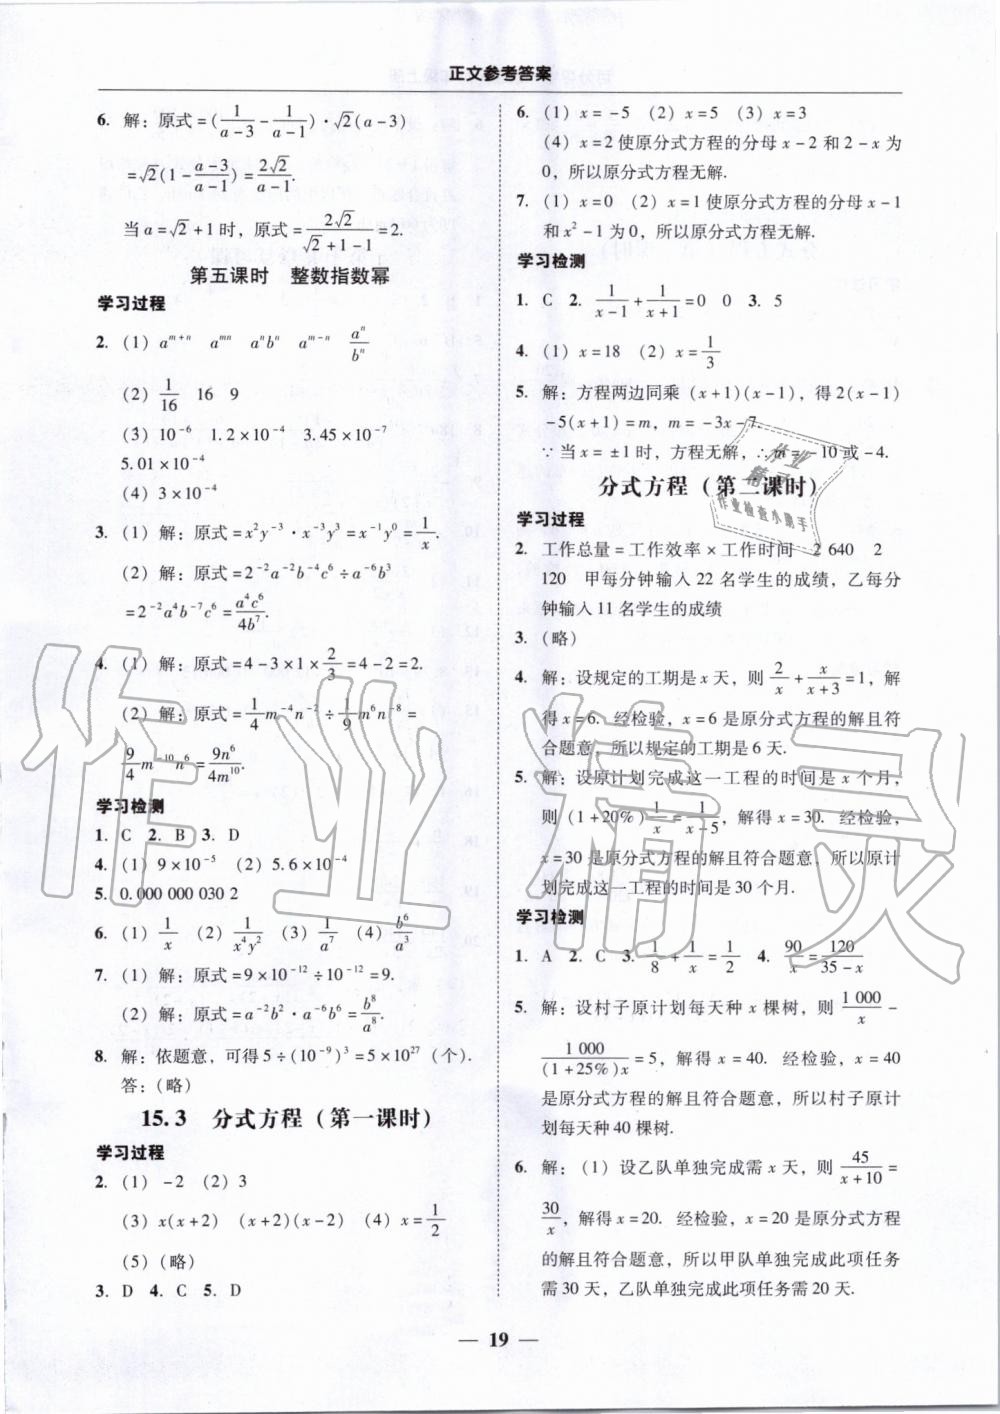 正文参考答案
6. 解：原式=(1/(a-3) - 1/(a-1))·√2(a-3)
=√2(1-(a-3)/(a-1))=2√2/(a-1).
当a=√2+1时，原式=2√2/(√2+1-1)=2.
第五课时 整数指数幂
学习过程
2. (1) a^(m+n) a^(mn) a^n b^n a^(m-n) a^n/b^n
(2) 1/16 16 9
(3) 10^-6 1.2×10^-4 3.45×10^-7
5.01×10^-4
(4) 3×10^-4
3. (1) 解：原式=x^2y^-3·x^-3y^3=x^-1y^0=1/x.
(2) 解：原式=2^-2a^-2b^-4c^6÷a^-6b^3
=2^-2a^4b^-7c^6=a^4c^6/4b^7.
4. (1) 解：原式=4-3×1×2/3=4-2=2.
(2) 解：原式=1/4 m^-4n^-2÷1/9 m^6n^-8=
9/4 m^-10n^6=9n^6/4m^10.
学习检测
1. C 2. B 3. D
4. (1) 9×10^-5 (2) 5.6×10^-4
5. 0.000 000 030 2
6. (1) 1/x (2) 1/(x^4y^2) (3) 1/a^7 (4) b^6/a^3
7. (1) 解：原式=9×10^-12÷10^-12=9.
(2) 解：原式=a^-2b^2·a^-6b^6=b^8/a^8.
8. 解：依题意，可得5÷(10^-9)^3=5×10^27（个）.
答：（略）
15.3 分式方程（第一课时）
学习过程
2. (1) -2 (2) 3
(3) x(x+2) (x+2)(x-2) (4) x=1/2
(5)（略）
3. D 4. C 5. D
6. (1) x=-5 (2) x=5 (3) x=3
(4) x=2使原分式方程的分母x-2和2-x为
0，所以原分式方程无解.
7. (1) x=0 (2) x=1使原分式方程的分母x-1
和x^2-1为0，所以原分式方程无解.
学习检测
1. C 2. 1/(x-1)+1/(x+1)=0 0 3. 5
4. (1) x=18 (2) x=1/3
5. 解：方程两边同乘(x+1)(x-1)，得2(x-1)
-5(x+1)=m，m=-3x-7.
∵当x=±1时，方程无解，∴m=-10或-4.
分式方程（第二课时）
学习过程
2. 工作总量=工作效率×工作时间 2 640 2
120 甲每分钟输入22名学生的成绩，乙每分
钟输入11名学生的成绩
3.（略）
4. 解：设规定的工期是x天，则2/x+x/(x+3)=1，解
得x=6. 经检验，x=6是原分式方程的解且符
合题意，所以规定的工期是6天.
5. 解：设原计划完成这一工程的时间是x个月，
则(1+20%)1/x=1/(x-5)，解得x=30. 经检验，
x=30是原分式方程的解且符合题意，所以原计
划完成这一工程的时间是30个月.
学习检测
1. A 2. C 3. 1/8+1/x=1/2 4. 90/x=120/(35-x)
5. 解：设村子原计划每天种x棵树，则1 000/x-
1 000/((1+25%)x)=5，解得x=40. 经检验，x=40
是原分式方程的解且符合题意，所以村子原计
划每天种40棵树.
6. 解：(1) 设乙队单独完成需x天，则45/(x+10)=
30/x，解得x=20. 经检验，x=20是原分式方程
的解且符合题意，所以甲队单独完成此项任务
需30天，乙队单独完成此项任务需20天.
— 19 —
作业精灵
作业检查小助手